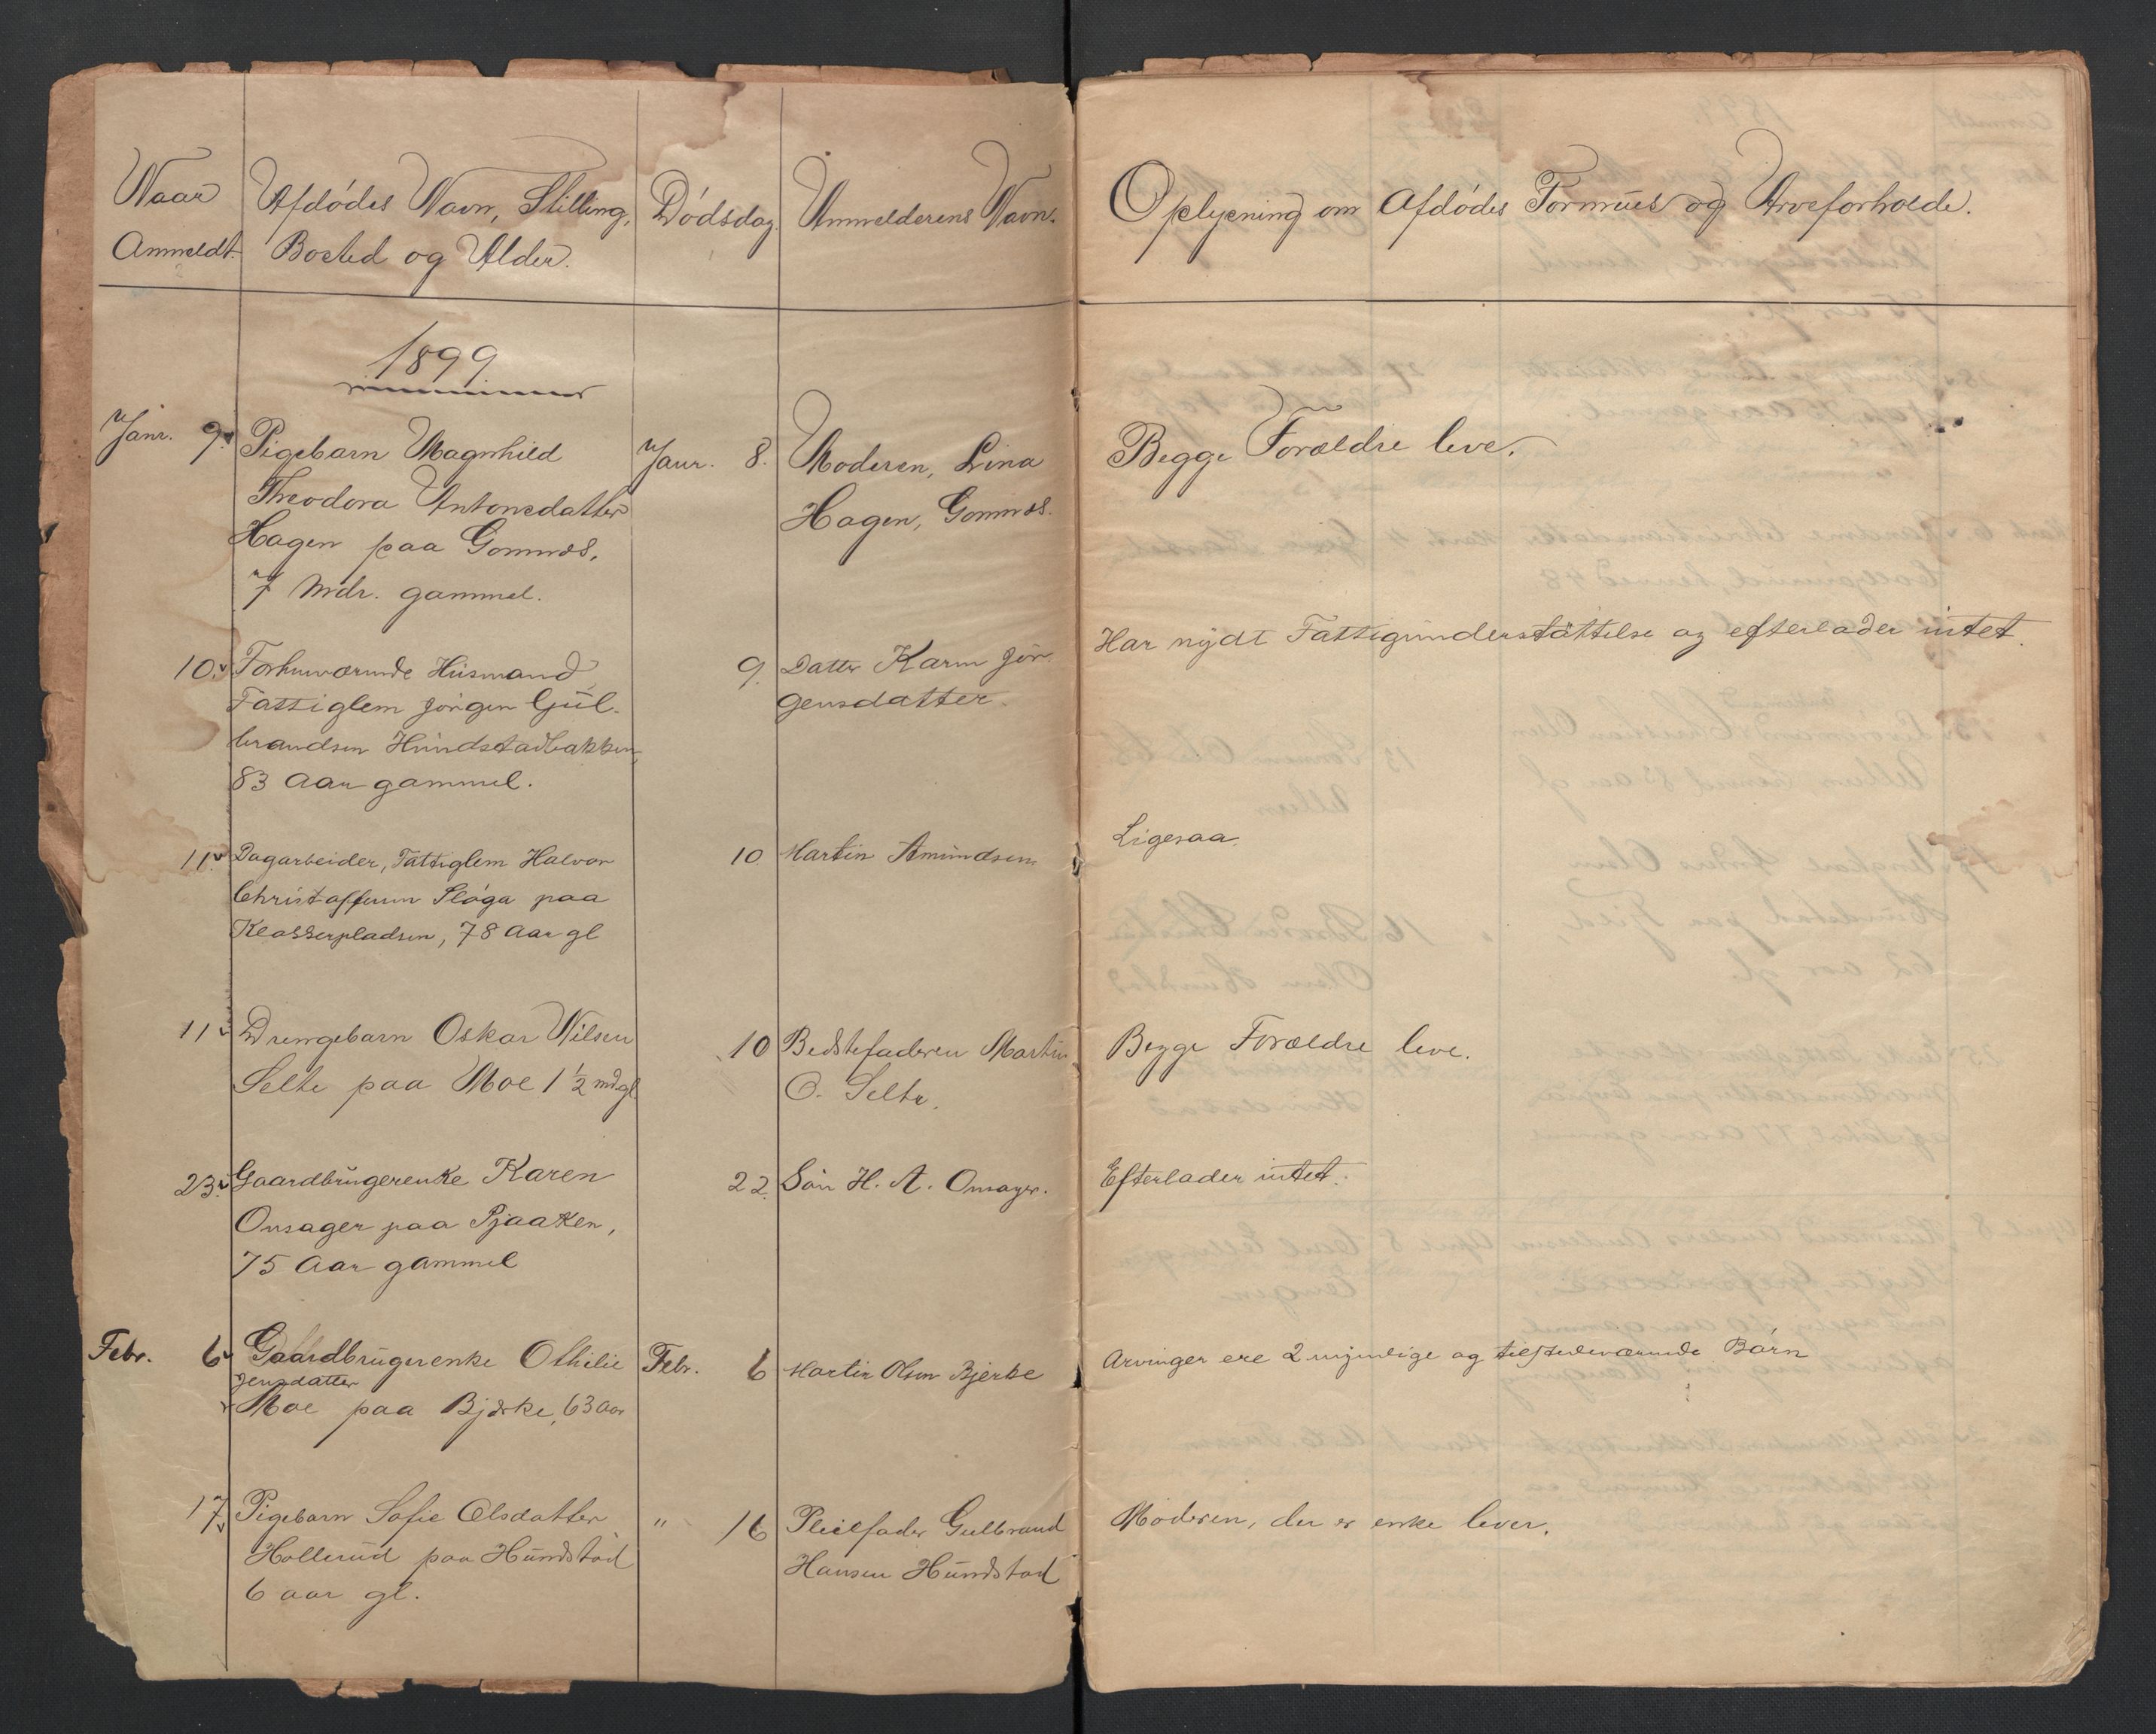 Naar
Anmeldt.
Afdödes Navn, Stilling,
Bosted og Alder.
Dödsdag.
Anmelderens Navn.
Oplysning om Afdödes Formues og Arveforholde.
1899
Janr. 9. Pigebarn Magnhild
Theodora Antonsdatter
Hagen paa Gomnæs,
7 Mdr. gammel.
Janr. 8.
Moderen, Lina
Hagen, Gomnæs.
Begge Forældre leve.
10. Forhenværende Husmand
Fattiglem Jörgen Gul-
brandsen Hundstadbakken,
83 Aar gammel.
9.
Datter Karen Jör
gensdatter.
Har nydt Fattigunderstöttelse og efterlader intet.
11. Dagarbeider, Fattiglem Halvor
Christoffersen Slöga paa
Klosserpladsen, 78 Aar gl
10
Martin Amundsen
Ligesaa.
11 Drengebarn Oskar Nilsen
Selte paa Moe 1 1/2 md gl
10
Bedstefaderen Martin
O. Selte.
Begge Forældre leve.
23. Gaardbrugerenke Karen
Onsager paa Pjaaken,
75 Aar gammel
22.
Sön H. A. Onsager.
Efterlader intet.
Febr. 6 Gaardbrugerenke Othilie
Jensdatter
Moe paa Bjerke, 63 Aar
Febr. 6
Martin Olsen Bjerke
Arvinger ere 2 myndige og tilstedeværende Börn
17 Pigebarn Sofie Olsdatter
Hollerud paa Hundstad
6 aar gl.
" 16
Pleiefader Gulbrand
Hansen Hundstad
Moderen, der er enke lever.